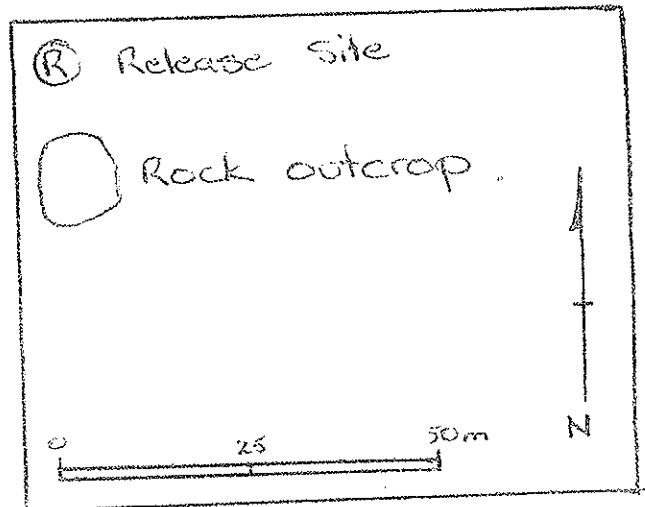 R Release Site
Rock outcrop.
N
0 25 50m